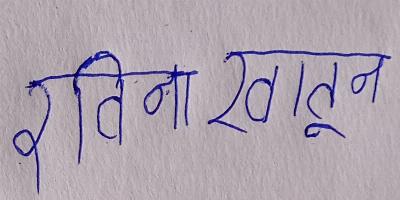 रतिना खातून